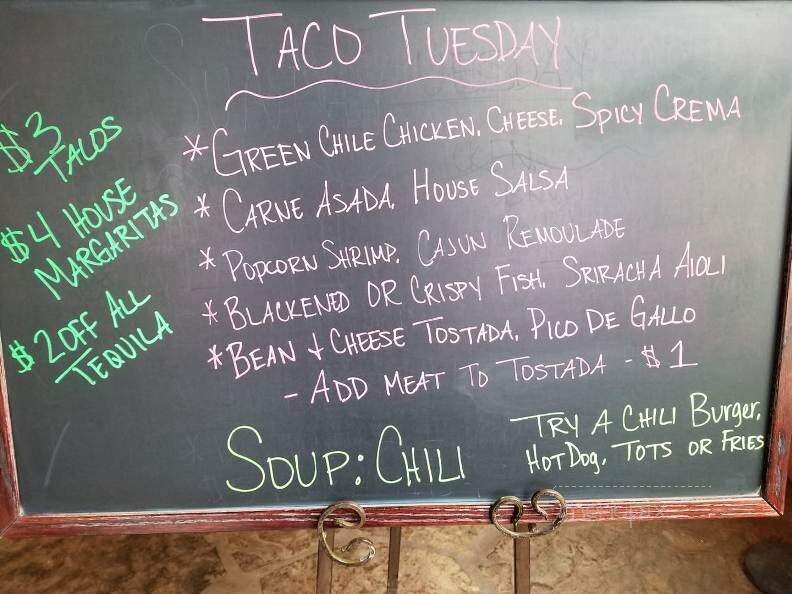 TACO TUESDAY
$3 TACOS
$4 HOUSE
MARGARITAS
$2 OFF ALL
TEQUILA
* GREEN CHILE CHICKEN. CHEESE. SPICY CREMA
* CARNE ASADA. HOUSE SALSA
* POPCORN SHRIMP. CAJUN REMOULADE
* BLACKENED OR CRISPY FISH. SRIRACHA AIOLI
* BEAN + CHEESE TOSTADA. PICO DE GALLO
- ADD MEAT TO TOSTADA - $1
SOUP: CHILI
TRY A CHILI Burger,
HOT DOg, TOTS OR FRIES